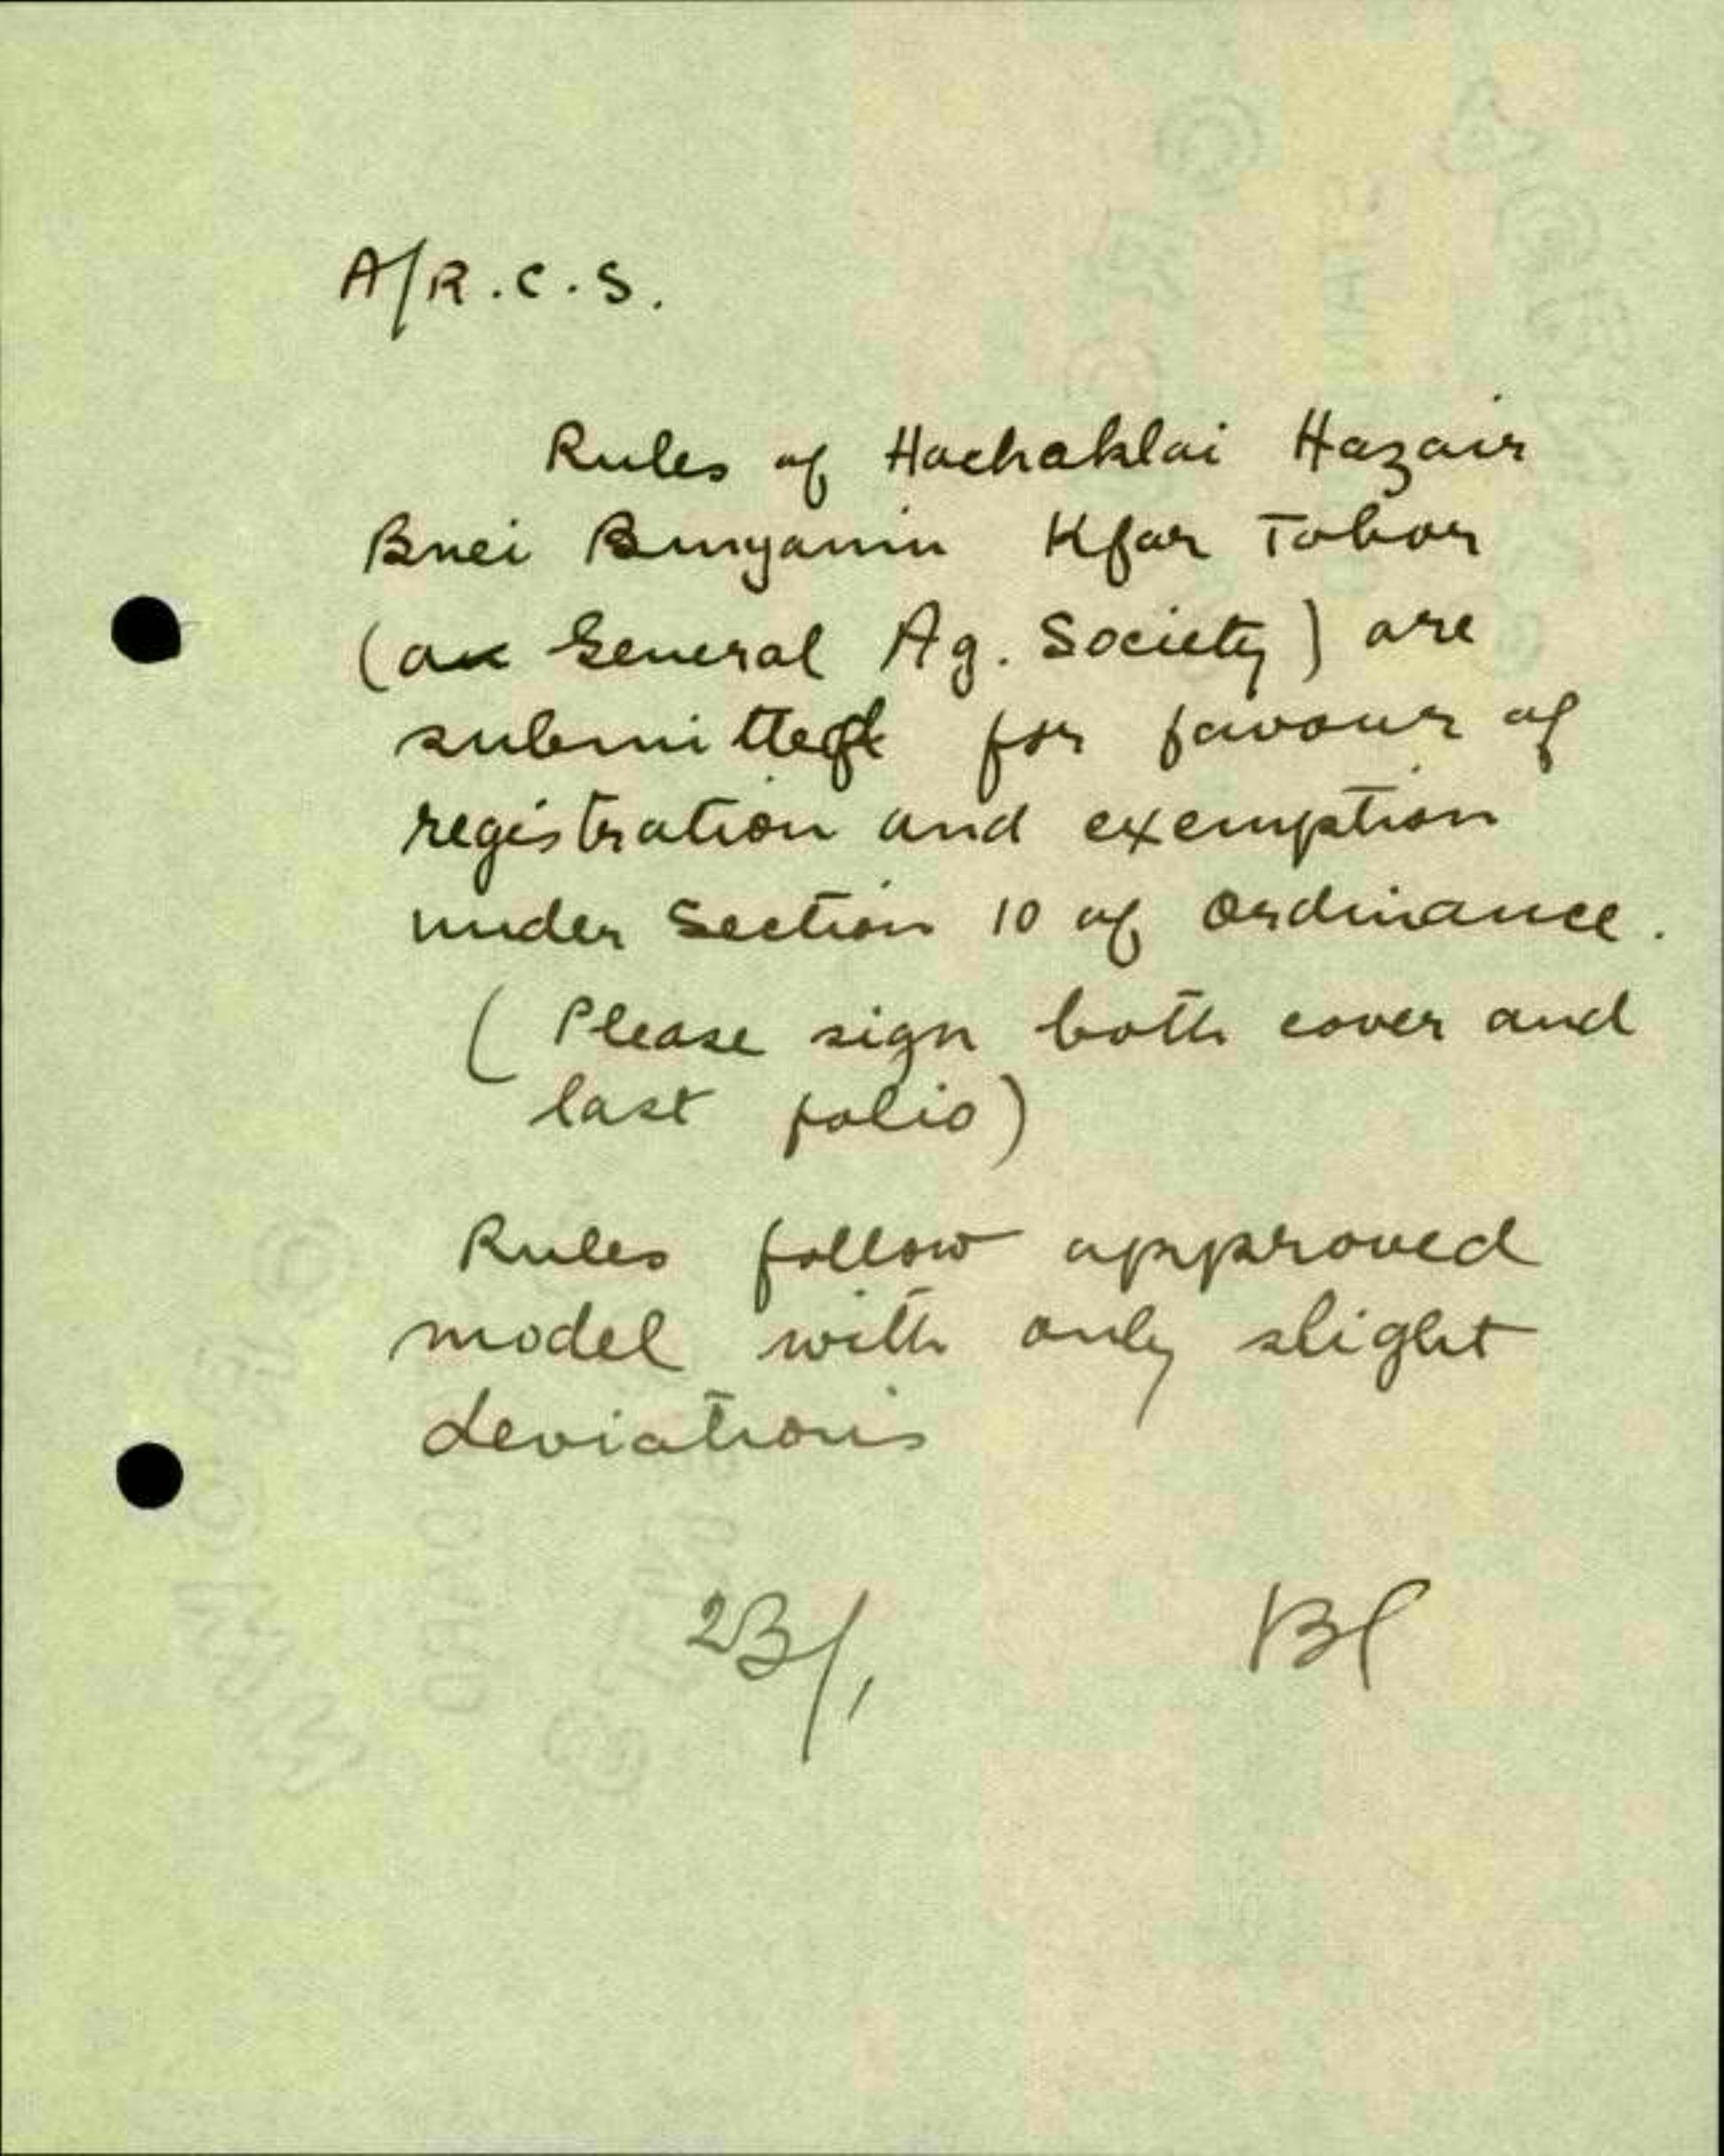 A/R.C.S.
Rules of Hachaklai Hazair
Bnei Binyamin Kfar Tabor
(a General Ag. Society) are
submitted for favour of
registration and exemption
under Section 10 of Ordinance.
(Please sign both cover and
last folio)
Rules follow approved
model with only slight
deviations
23/1